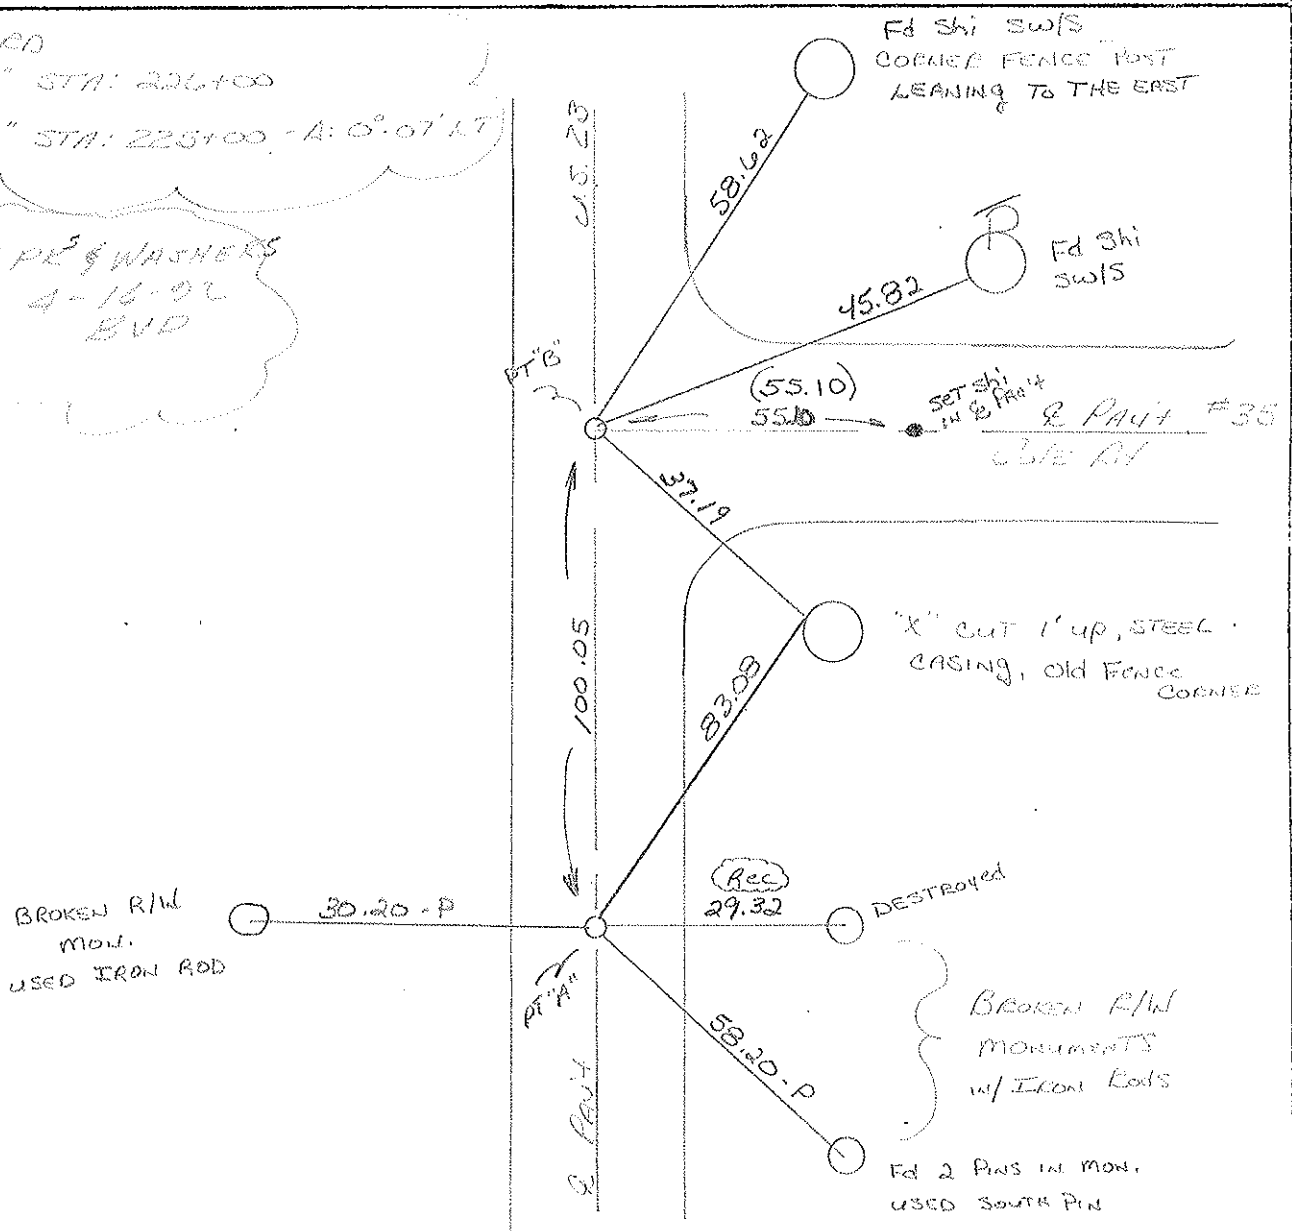 " STA: 226+00
" STA: 225+00 - A: 0°-07' LT
PKS & WASHERS
4-16-92
Fd Shi SW/S
CORNER FENCE POST
LEANING TO THE EAST
U.S. 23
58.62
P
Fd Shi
SW/S
45.82
PT "B"
(55.10)
55.10
SET Shi
IN ℄ PAV't
℄ PAV't
37.19
100.05
"X" CUT 1' UP, STEEL
CASING, Old FENCE
CORNER
83.08
BROKEN R/W
MON.
USED IRON ROD
30.20-P
Rec
29.32
DESTROYED
PT "A"
58.20-P
BROKEN R/W
MONUMENTS
W/ IRON RODS
℄ PAV't
Fd 2 PINS IN MON.
USED SOUTH PIN